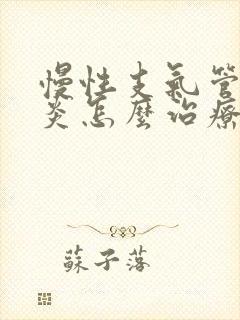 慢性支氣管
炎怎麼治療
蘇子落